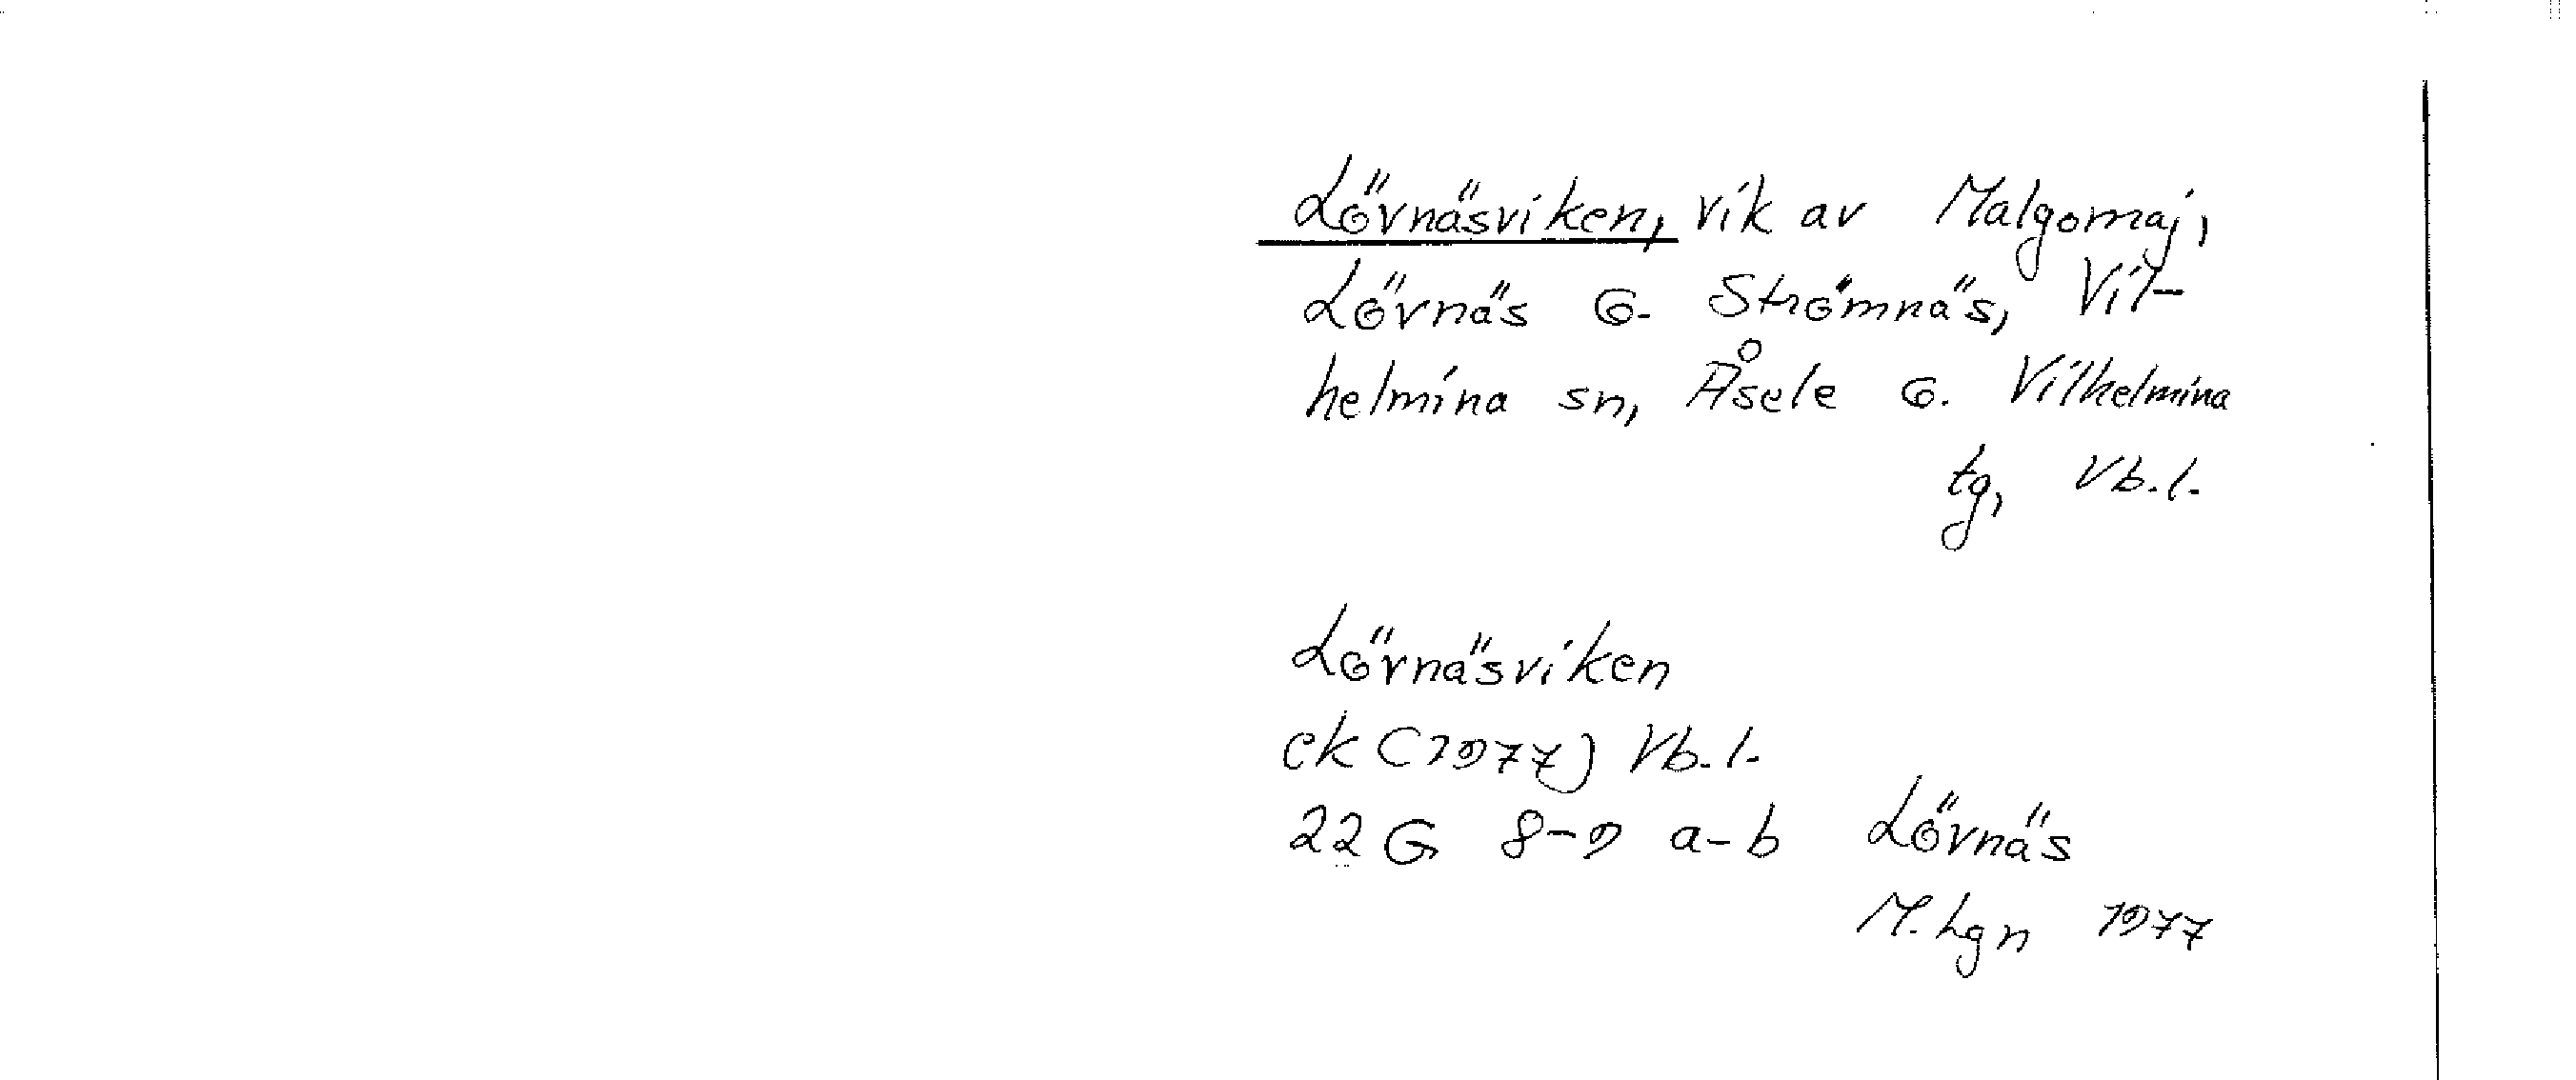 Lövnäsviken, vik av Malgomaj,
Lövnäs o. Strömnäs, Vil-
helmina sn, Åsele o. Vilhelmina
tg, Vb.l.
Lövnäsviken
ek (1977) Vb.l.
22 G 8-9 a-b Lövnäs
M. Lgn 1977